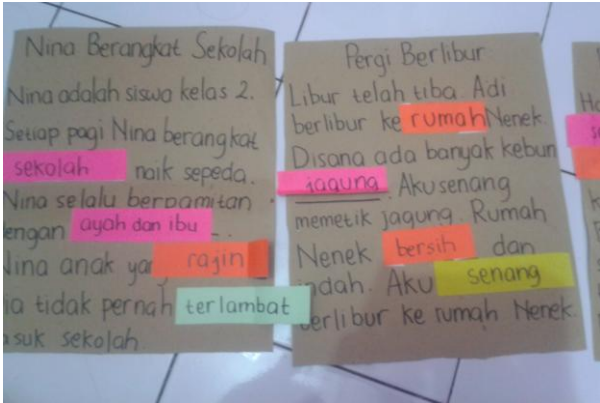 Nina Berangkat Sekolah
Nina adalah siswa kelas 2.
Setiap pagi Nina berangkat
sekolah naik sepeda.
Nina selalu berpamitan
dengan ayah dan ibu.
Nina anak yang rajin
tidak pernah terlambat
sekolah
Pergi Berlibur
Libur telah tiba. Adi
berlibur ke rumah Nenek
Disana ada banyak kebun
jagung. Aku senang
memetik jagung. Rumah
Nenek bersih dan
indah. Aku senang
berlibur ke rumah Nenek.